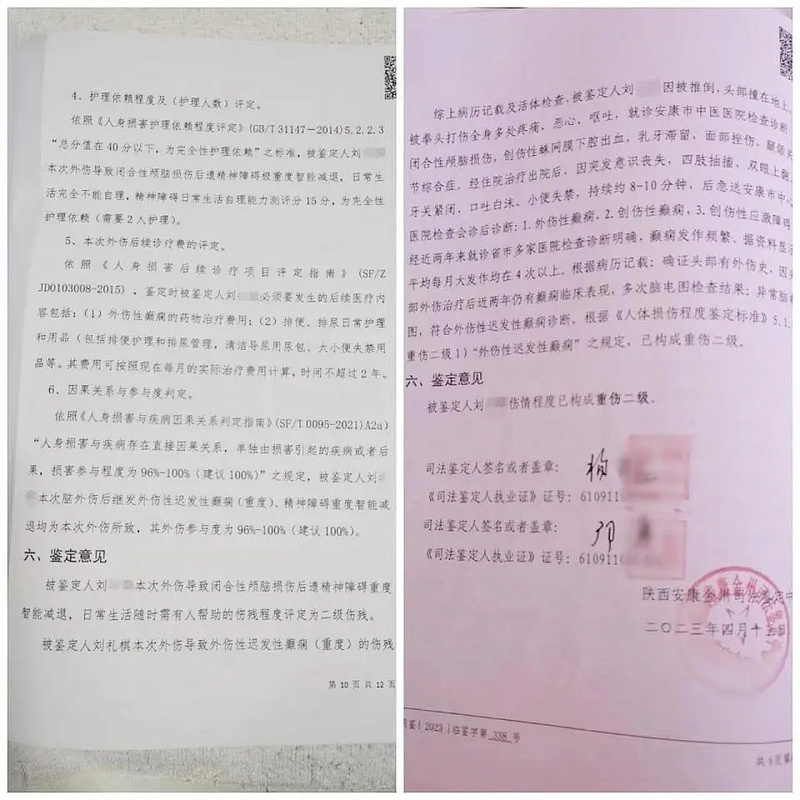 4、护理依赖程度及(护理人数)评定。
依照《人身损害护理依赖程度评定》(GB/T 31147—2014)5.2.2.3
“总分值在40分以下,为完全性护理依赖”之标准,被鉴定人刘
本次外伤导致闭合性颅脑损伤后遗精神障碍极重度智能减退,日常生
活完全不能自理,精神障碍日常生活自理能力测评分15分,为完全性
护理依赖(需要2人护理)。
5、本次外伤后续诊疗费的评定。
依照《人身损害后续诊疗项目评定指南》(SF/Z
JD0103008-2015),鉴定时被鉴定人刘 必须要发生的后续医疗内
容包括:(1)外伤性癫痫的药物治疗费用;(2)排便、排尿日常护理
和用品(包括排便护理和排尿管理,清洁导尿用尿包、大小便失禁用
品等。其费用可按照现在每月的实际治疗费用计算,时间不超过2年。
6、因果关系与参与度判定。
依照《人身损害与疾病因果关系判定指南》(SF/T 0095-2021)A2n)
“人身损害与疾病存在直接因果关系,单独由损害引起的疾病或者后
果,损害参与程度为96%-100%(建议100%)”之规定,被鉴定人刘
本次脑外伤后继发外伤性迟发性癫痫(重度)、精神障碍重度智能减
退均为本次外伤所致,其外伤参与度为96%-100%(建议100%)。
六、鉴定意见
被鉴定人刘 本次外伤导致闭合性颅脑损伤后遗精神障碍重度
智能减退,日常生活随时需有人帮助的伤残程度评定为二级伤残。
被鉴定人刘礼棋本次外伤导致外伤性迟发性癫痫(重度)的伤残
第 10 页 共 12 页
综上病历记载及活体检查,被鉴定人刘 因被推倒,头部撞在地上,
被拳头打伤全身多处疼痛、恶心、呕吐,就诊安康市中医医院检查诊断:
闭合性颅脑损伤,创伤性蛛网膜下腔出血,乳牙滞留,面部挫伤,颞颌关
节综合症。经住院治疗出院后,因突发意识丧失,四肢抽搐、双眼上翻、
牙关紧闭、口吐白沫、小便失禁,持续约8-10分钟,后急送安康市中心
医院检查会诊后诊断:1.外伤性癫痫,2.创伤性癫痫,3.创伤性应激障碍
经近两年来就诊省市多家医院检查诊断明确,癫痫发作频繁、据资料显示
平均每月大发作均在4次以上。根据病历记载:确证头部有外伤史,因头
部外伤治疗后近两年仍有癫痫临床表现,多次脑电图检查结果:异常脑电
图,符合外伤性迟发性癫痫诊断。根据《人体损伤程度鉴定标准》5.1.
重伤二级1)“外伤性迟发性癫痫”之规定,已构成重伤二级。
六、鉴定意见
被鉴定人刘 伤情程度已构成重伤二级。
司法鉴定人签名或者盖章:
《司法鉴定人执业证》证号:610911
司法鉴定人签名或者盖章:
《司法鉴定人执业证》证号:610911
陕西安康金州司法鉴定中
二〇二三年四月十
鉴[2023]临鉴字第 338 号
共 6 页第